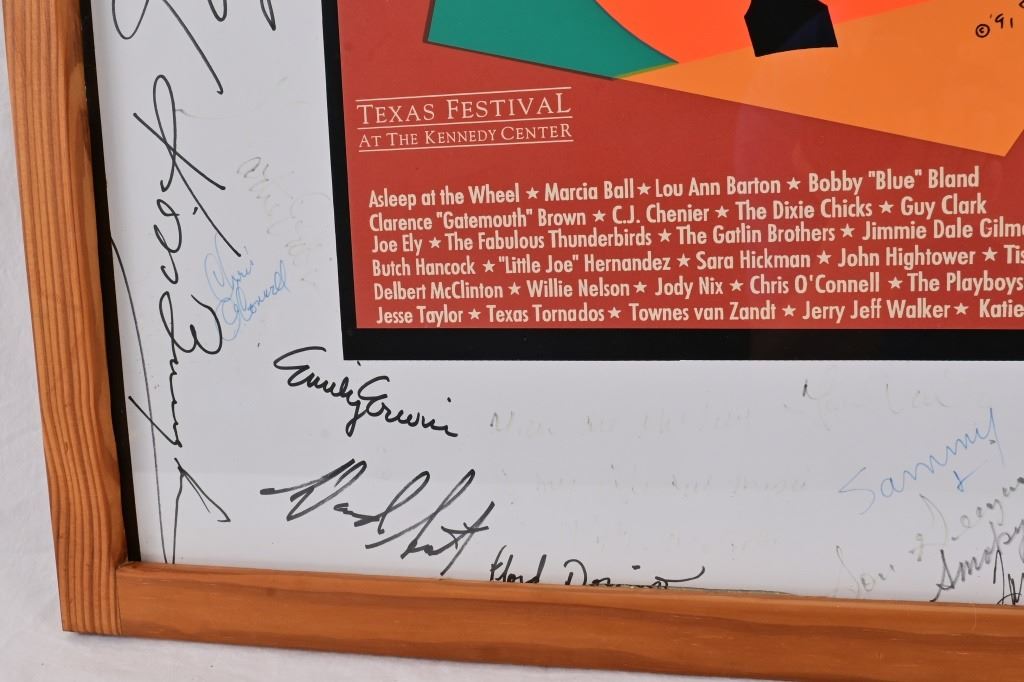 © '91
TEXAS FESTIVAL
AT THE KENNEDY CENTER
Asleep at the Wheel ★ Marcia Ball ★ Lou Ann Barton ★ Bobby "Blue" Bland
Clarence "Gatemouth" Brown ★ C.J. Chenier ★ The Dixie Chicks ★ Guy Clark
Joe Ely ★ The Fabulous Thunderbirds ★ The Gatlin Brothers ★ Jimmie Dale Gilm
Butch Hancock ★ "Little Joe" Hernandez ★ Sara Hickman ★ John Hightower ★ Tis
Delbert McClinton ★ Willie Nelson ★ Jody Nix ★ Chris O'Connell ★ The Playboys
Jesse Taylor ★ Texas Tornados ★ Townes van Zandt ★ Jerry Jeff Walker ★ Katie
Chris O'Connell
Emily Erwin
Sammy
+
Floyd Domino